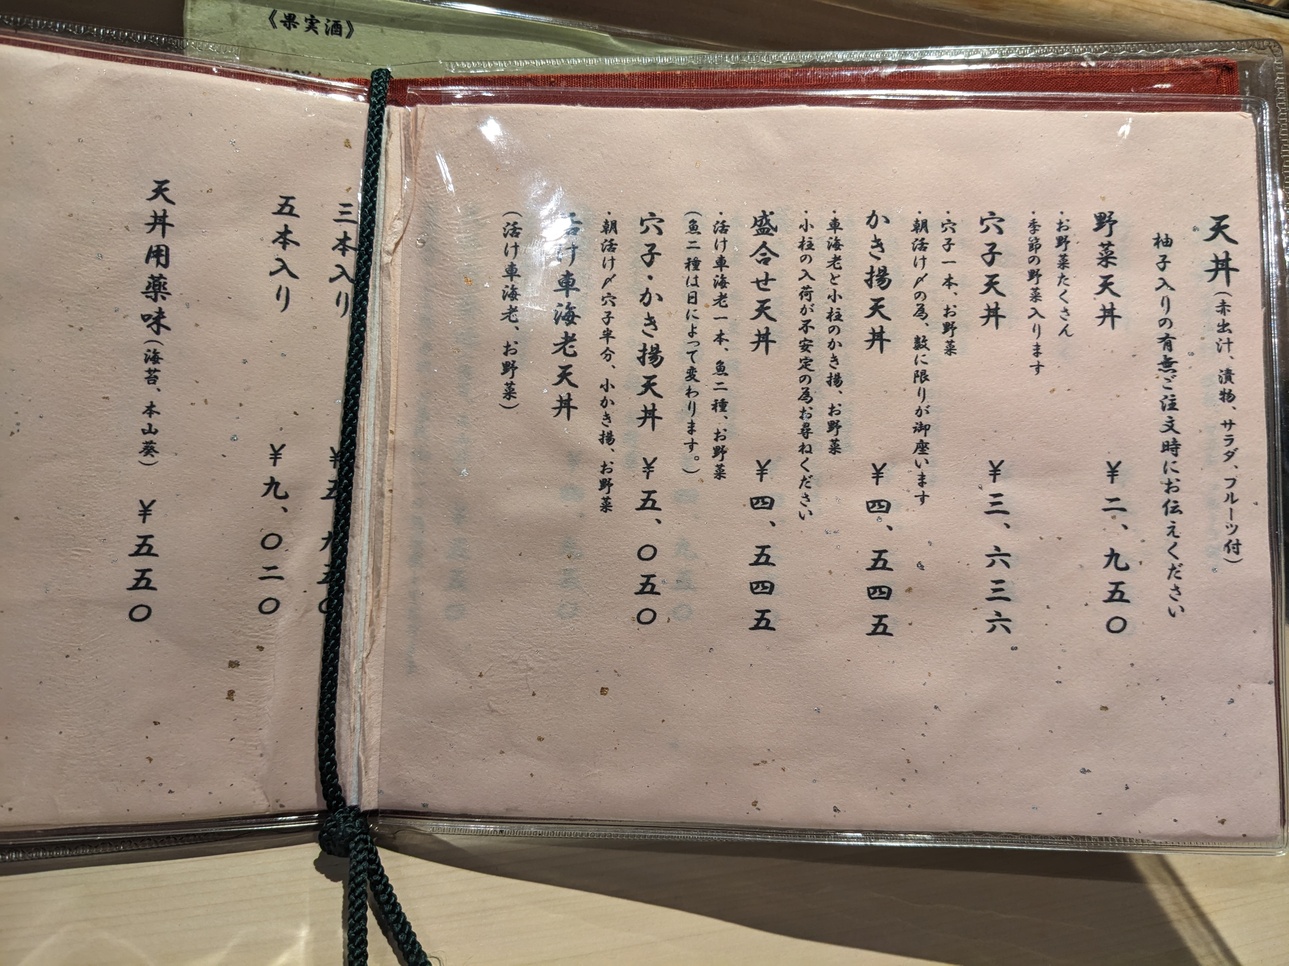 《果実酒》
天丼(赤出汁、漬物、サラダ、フルーツ付)
柚子入りの有無ご注文時にお伝えください
野菜天丼 ¥二、九五〇
・お野菜たくさん
・季節の野菜入ります
穴子天丼 ¥三、六三六
・穴子一本、お野菜
・朝活け〆の為、数に限りが御座います
かき揚天丼 ¥四、五四五
・車海老と小柱のかき揚、お野菜
・小柱の入荷が不安定の為お尋ねください
盛合せ天丼 ¥四、五四五
・活け車海老一本、魚二種、お野菜
(魚二種は日によって変わります。)
穴子・かき揚天丼 ¥五、〇五〇
・朝活け〆穴子半分、小かき揚、お野菜
活け車海老天丼
(活け車海老、お野菜)
三本入り
五本入り ¥九、〇二〇
天丼用薬味(海苔、本山葵) ¥五五〇